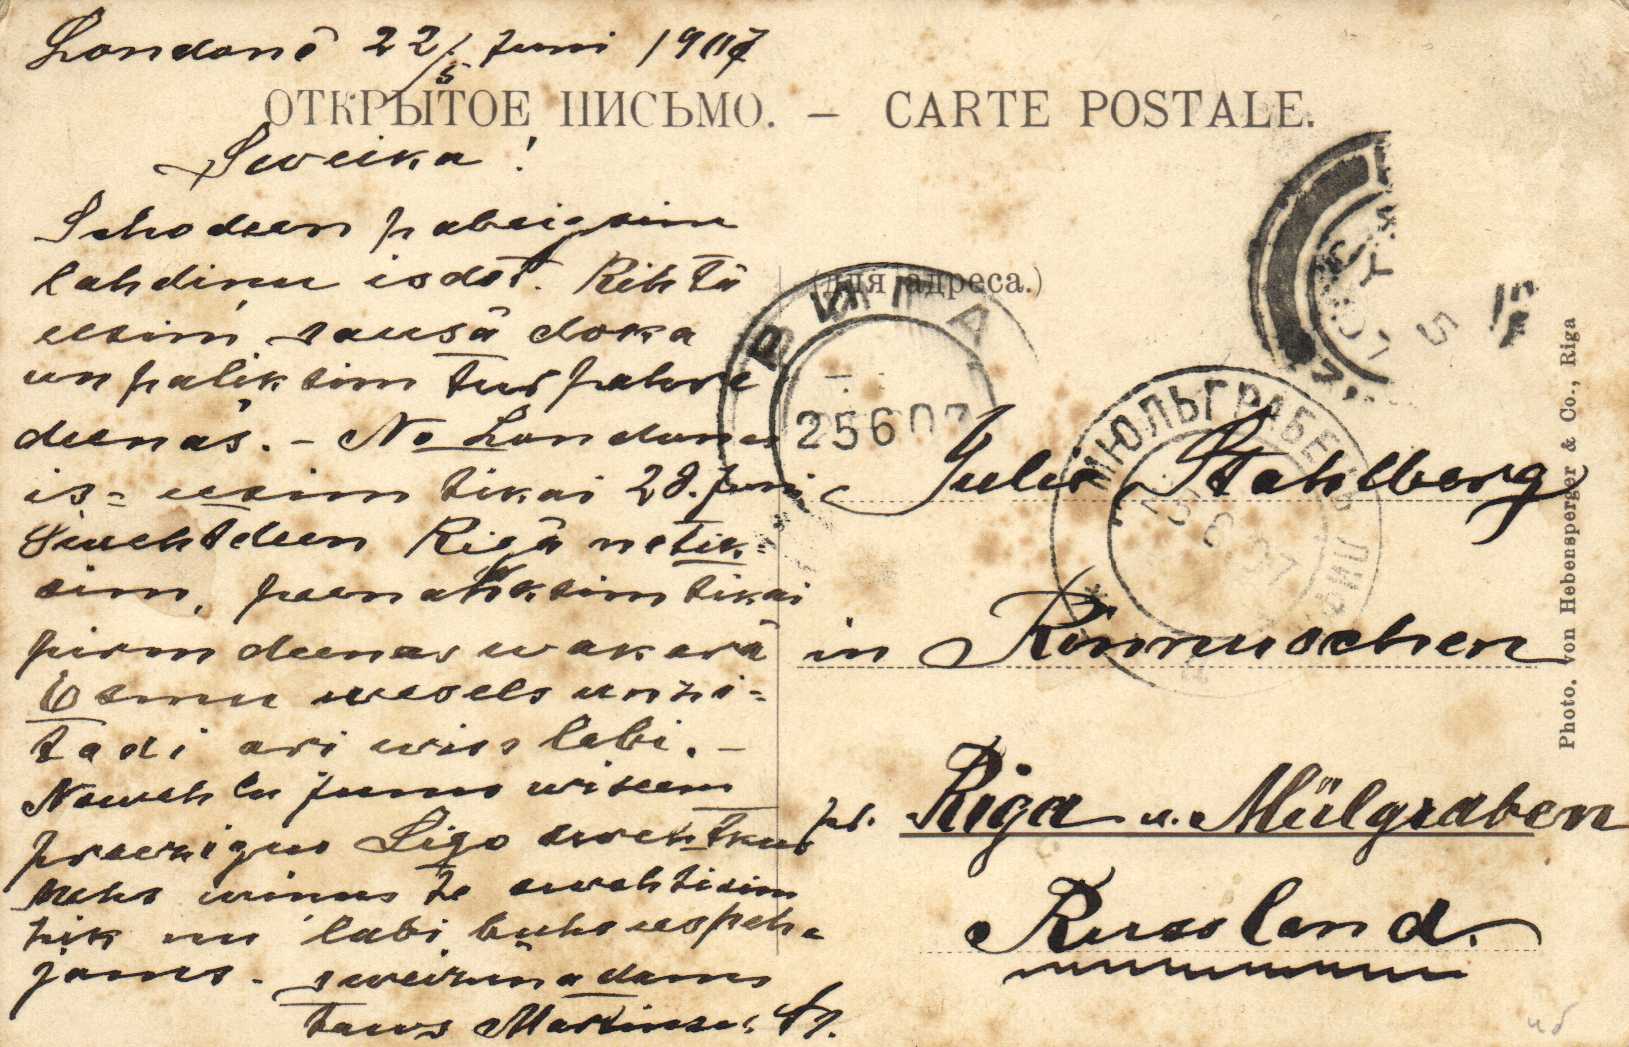 Londonē 22/5 Juni 1907
ОТКРЫТОЕ ПИСЬМО. — CARTE POSTALE.
Sweika!
Schodeen pabeigsim
lahdiņu isdot. Rihtā
eesim sausā dokā
un paliksim tur pahre
deenas. – No Londonas
is= eesim tikai 28. Juni
Swehtdeen Rigā netik=
sim, peenahksim tikai
pirmdeenas wakarā
Esmu wesels un zi=
tadi ari wiss labi. –
Nowehlu jums wiseem
preezigus Ligo swehtkus
mehs winus te swehtisim
zik nu labi buhs eespeh=
jams. – sweizinadams
Taws Martinsch
(для адреса.)
РИГА
25 6 07
МЮЛЬГРАБЕНЪ
Julie Stahlberg
in Rinnuschen
pr. Riga u. Mülgraben
Russland.
Photo. von Hebensperger & Co., Riga